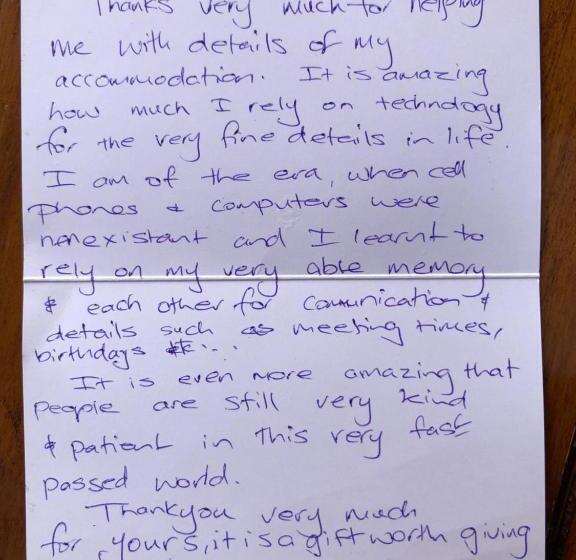 Thanks very much for helping
me with details of my
accommodation. It is amazing
how much I rely on technology
for the very fine details in life.
I am of the era, when cell
phones & computers were
nonexistant and I learnt to
rely on my very able memory
& each other for communication &
details such as meeting times,
birthdays etc...
It is even more amazing that
people are still very kind
& patient in this very fast
passed world.
Thankyou very much
for yours, it is a gift worth giving